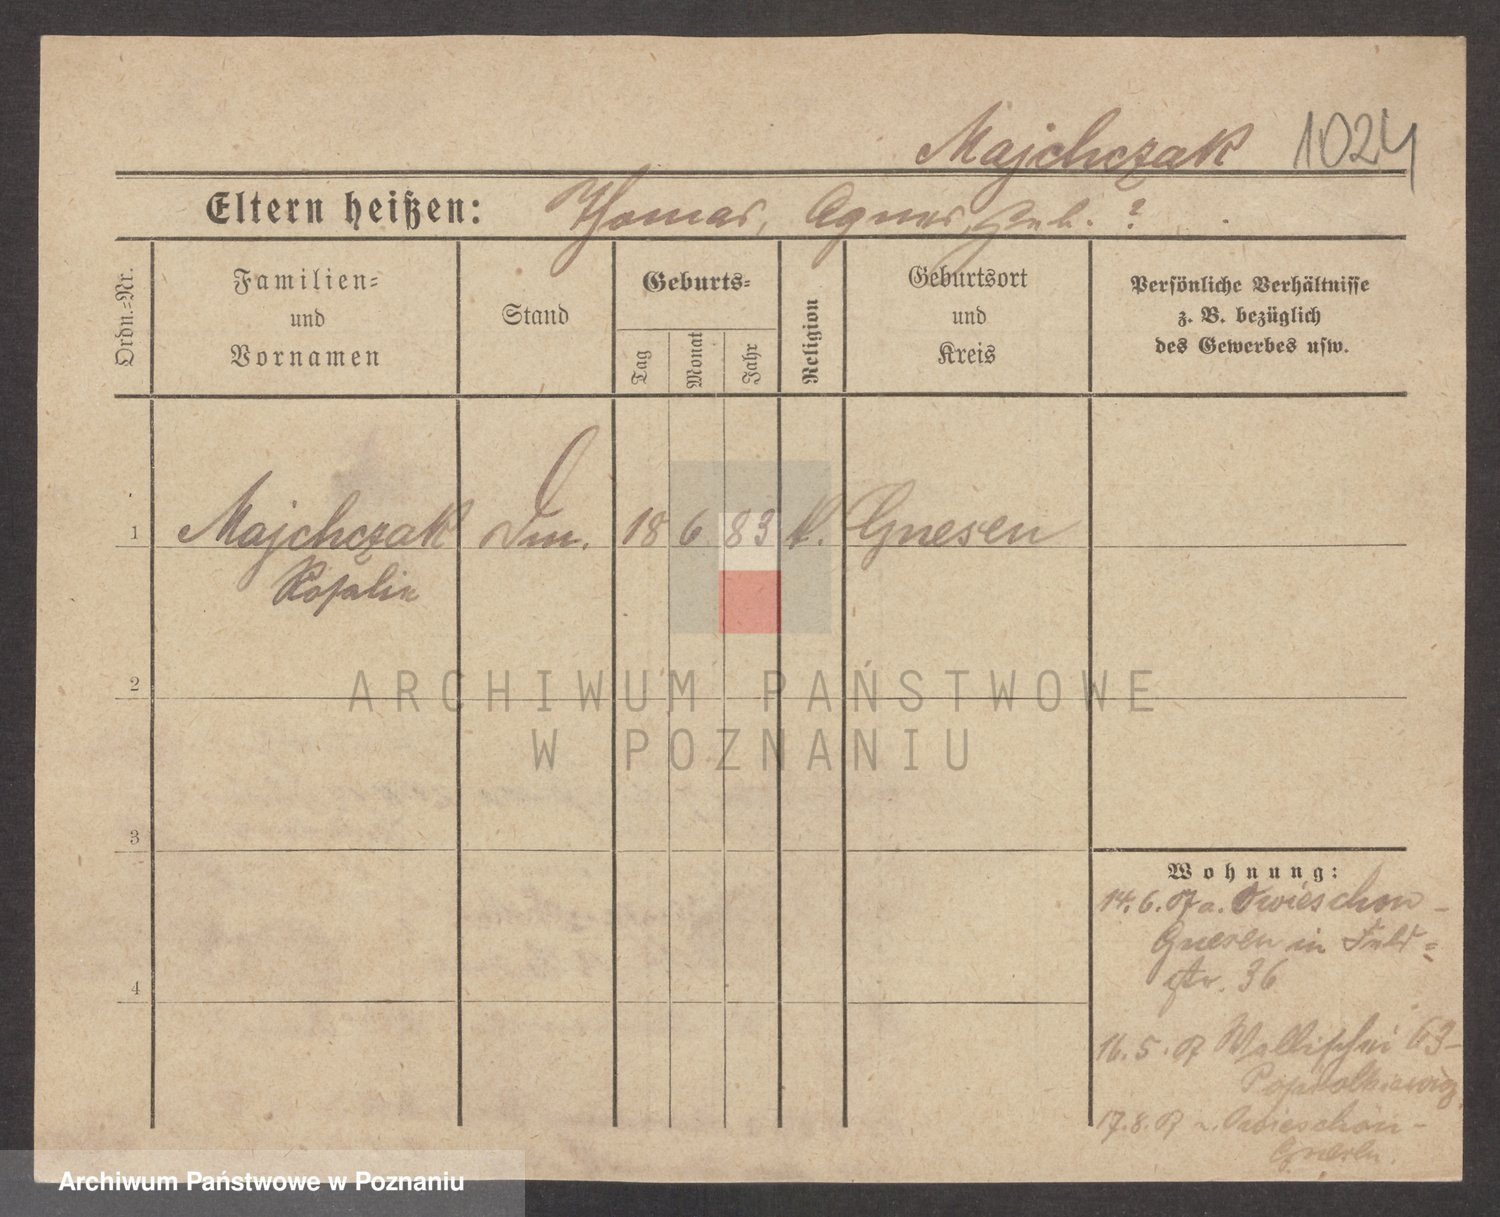 Majchczak 1024
Eltern heißen: Thomas, Agnes, geb. ?
Ordn.=Nr.
Familien=
und
Vornamen
Stand
Geburts=
Tag
Monat
Jahr
Religion
Geburtsort
und
Kreis
Persönliche Verhältnisse
z. B. bezüglich
des Gewerbes usw.
1 Majchczak 18 6 83 k. Gnesen
Rosalie
2
3
4
Wohnung:
14. 6.
Gnesen in Feld=
str. 36
16. 5. Wallischei 63
17. 8.
Gnesen.
ARCHIWUM PAŃSTWOWE
W POZNANIU
Archiwum Państwowe w Poznaniu